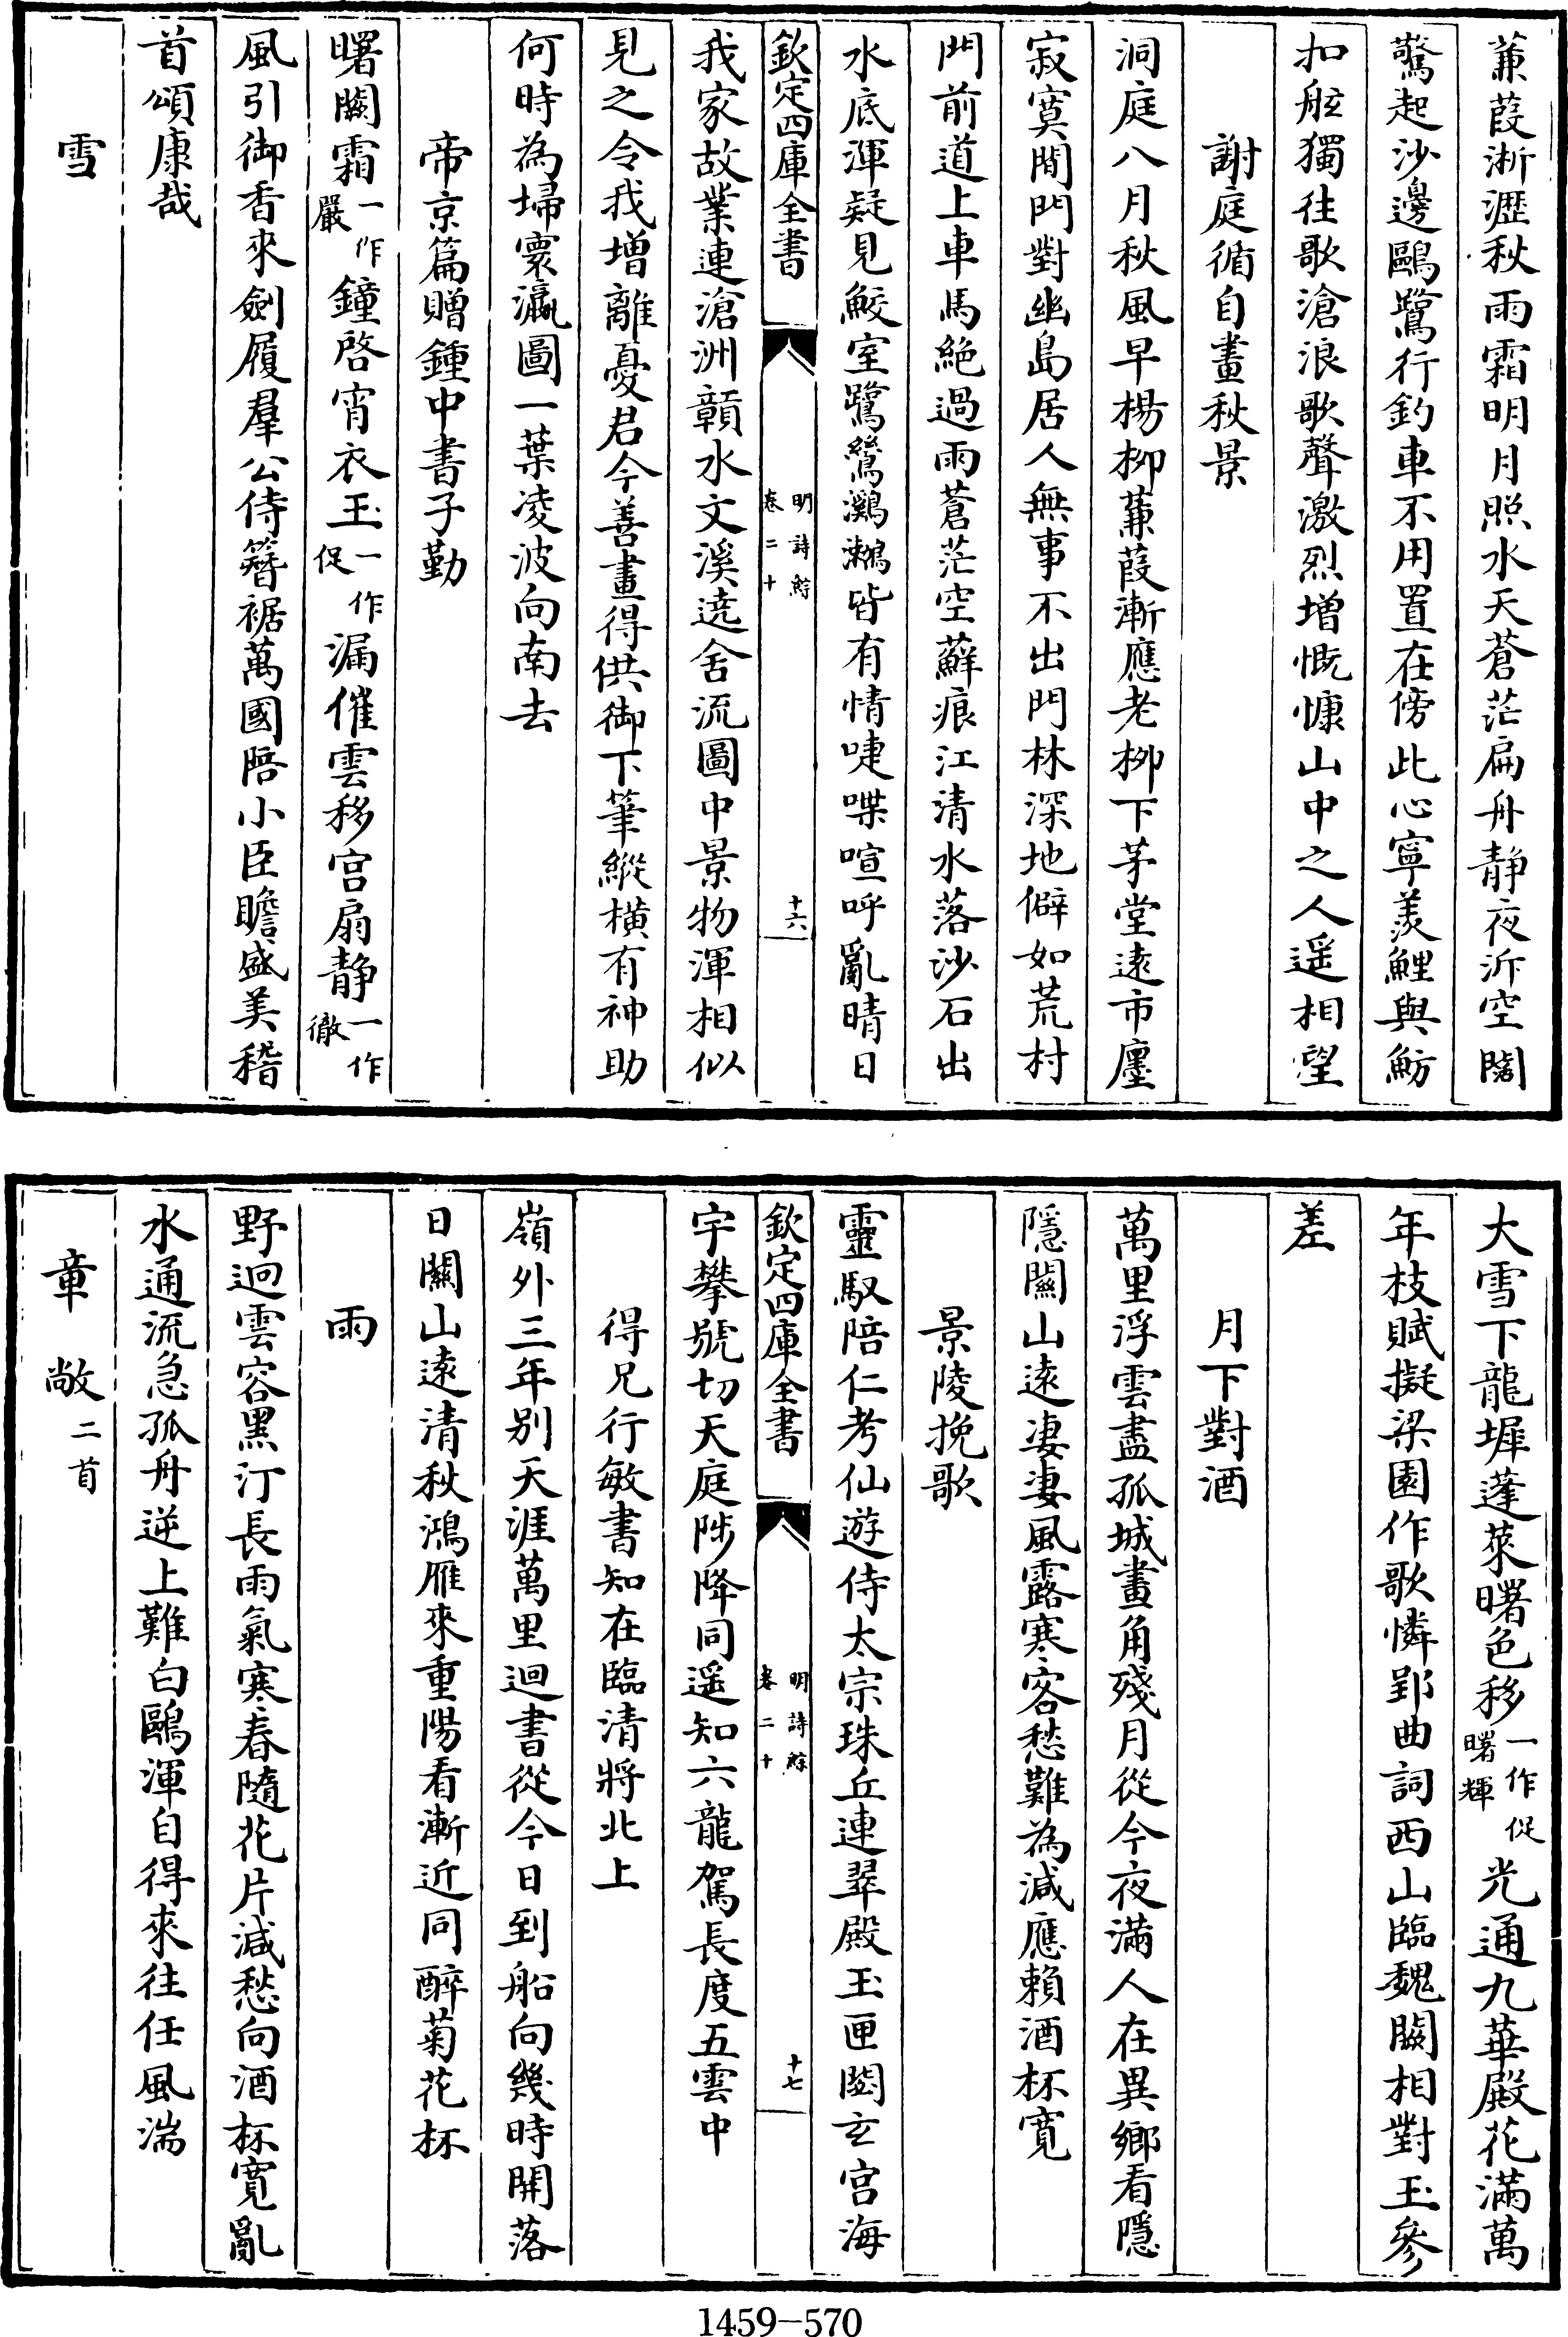 蒹葭淅瀝秋雨霜明月照水天蒼茫扁舟靜夜泝空闊
驚起沙邊鷗鷺行釣車不用置在傍此心寧羨鯉與魴
扣舷獨往歌滄浪歌聲激烈增慨慷山中之人遥相望
謝庭循自畫秋景
洞庭八月秋風早楊栁蒹葭漸應老栁下茅堂遠市廛
寂寞閒門對幽島居人無事不出門林深地僻如荒村
門前道上車馬絶過雨蒼茫空蘚痕江清水落沙石出
水底渾疑見鮫室鷺鶿鸂鶒皆有情唼喋喧呼亂晴日
欽定四庫全書
明詩綜
卷二十
十六
我家故業連滄洲贑水文溪遶舍流圖中景物渾相似
見之令我增離憂君今善畫得供御下筆縱横有神助
何時為埽寰瀛圖一葉凌波向南去
帝京篇贈鍾中書子勤
曙闕霜一作嚴鐘啓宵衣玉一作促漏催雲移宫扇靜一作徹
風引御香來劍履羣公侍簪裾萬國陪小臣瞻盛美稽
首頌康哉
雪
大雪下龍墀蓬萊曙色移一作促曙輝光通九華殿花滿萬
年枝賦擬梁園作歌憐郢曲詞西山臨魏闕相對玉參
差
月下對酒
萬里浮雲盡孤城畫角殘月從今夜滿人在異鄉看隱
隱關山遠凄凄風露寒客愁難為減應賴酒杯寛
景陵挽歌
靈馭陪仁考仙遊侍太宗珠丘連翠殿玉匣閟玄宫海
宇攀號切天庭陟降同遥知六龍駕長度五雲中
欽定四庫全書
明詩綜
卷二十
十七
得兄行敏書知在臨清將北上
嶺外三年别天涯萬里迴書從今日到船向幾時開落
日關山遠清秋鴻雁來重陽看漸近同醉菊花杯
雨
野迥雲容黑汀長雨氣寒春隨花片減愁向酒杯寛亂
水通流急孤舟逆上難白鷗渾自得來往任風湍
章敞二首
1459-570